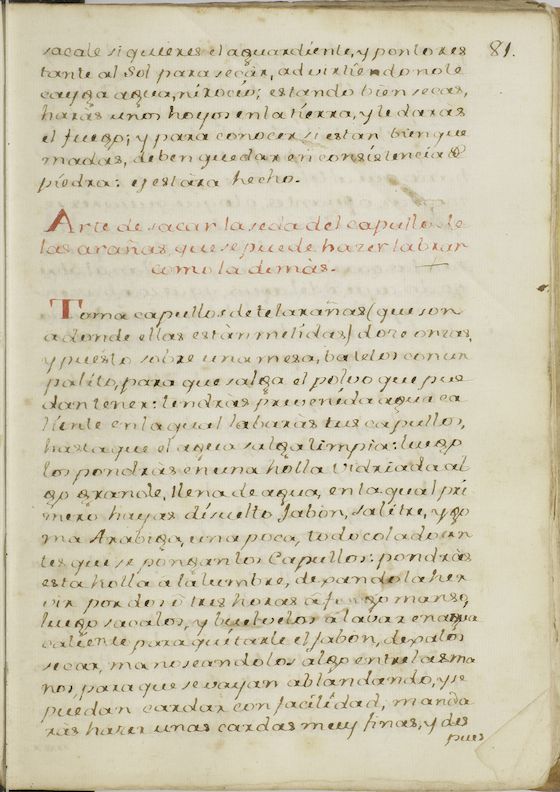 81.
sacale si quieres el aguardiente, y ponlo res
tante al Sol para secar, advirtiendo no le
cayga agua, ni rocio; estando bien secas,
harás unos hoyos en la tierra, y le daras
el fuego; y para conocer si estan bien que
madas, deben quedar en consistencia de
piedra: ejestara hecho.
Arte de sacar la seda del capullo de
las arañas, que se puede hazer labrar
como la demàs.
Toma capullos de telarañas (que son
adonde ellas estàn metidas) doze onzas,
y puesto sobre una mesa, batelos con un
palito, para que salga el polvo que pue
dan tener: tendràs prevenida agua ca
liente en la qual labaràs tus capullos,
hasta que el agua salga limpia: luego
los pondràs en una holla vidriada al
go grande, llena de agua, en la qual pri
mero hayas disuelto Jabòn, salitre, y go
ma Arabiga, una poca, todo colado an
tes que se pongan los Capullos: pondràs
esta holla à la lumbre, dexandola her
vir por dos ò tres horas à fuego manso,
luego sacalos, y buelvelos à lavar en agua
caliente para quitarle el Jabòn, dexalos
secar, manoseandolos algo entre las ma
nos, para que se vayan ablandando, y se
puedan cardar con facilidad, manda
ràs hazer unas cardas muy finas, y des
pues